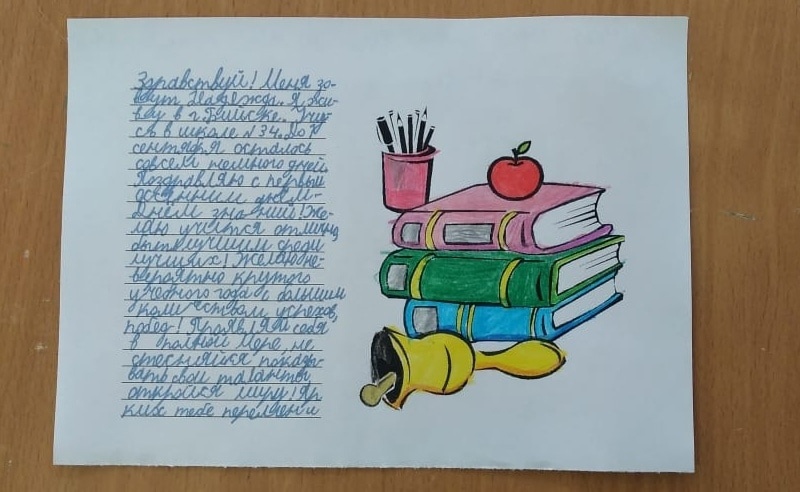 Здравствуй! Меня зо-
вут Надежда. Я жи-
ву в г. Бийске. Учу
сь в школе №34. До 1
сентября осталось
совсем немного дней.
Поздравляю с первым
осенним днём-
днём знаний! Же-
лаю учиться отлично
быть лучшим среди
лучших! Желаю не-
вероятно крутого
учебного года с большим
количеством успехов,
побед! Проявляй себя
в полной мере, не
стесняйся показы-
вать свои таланты
откройся миру! Яр
ких тебе перемен и